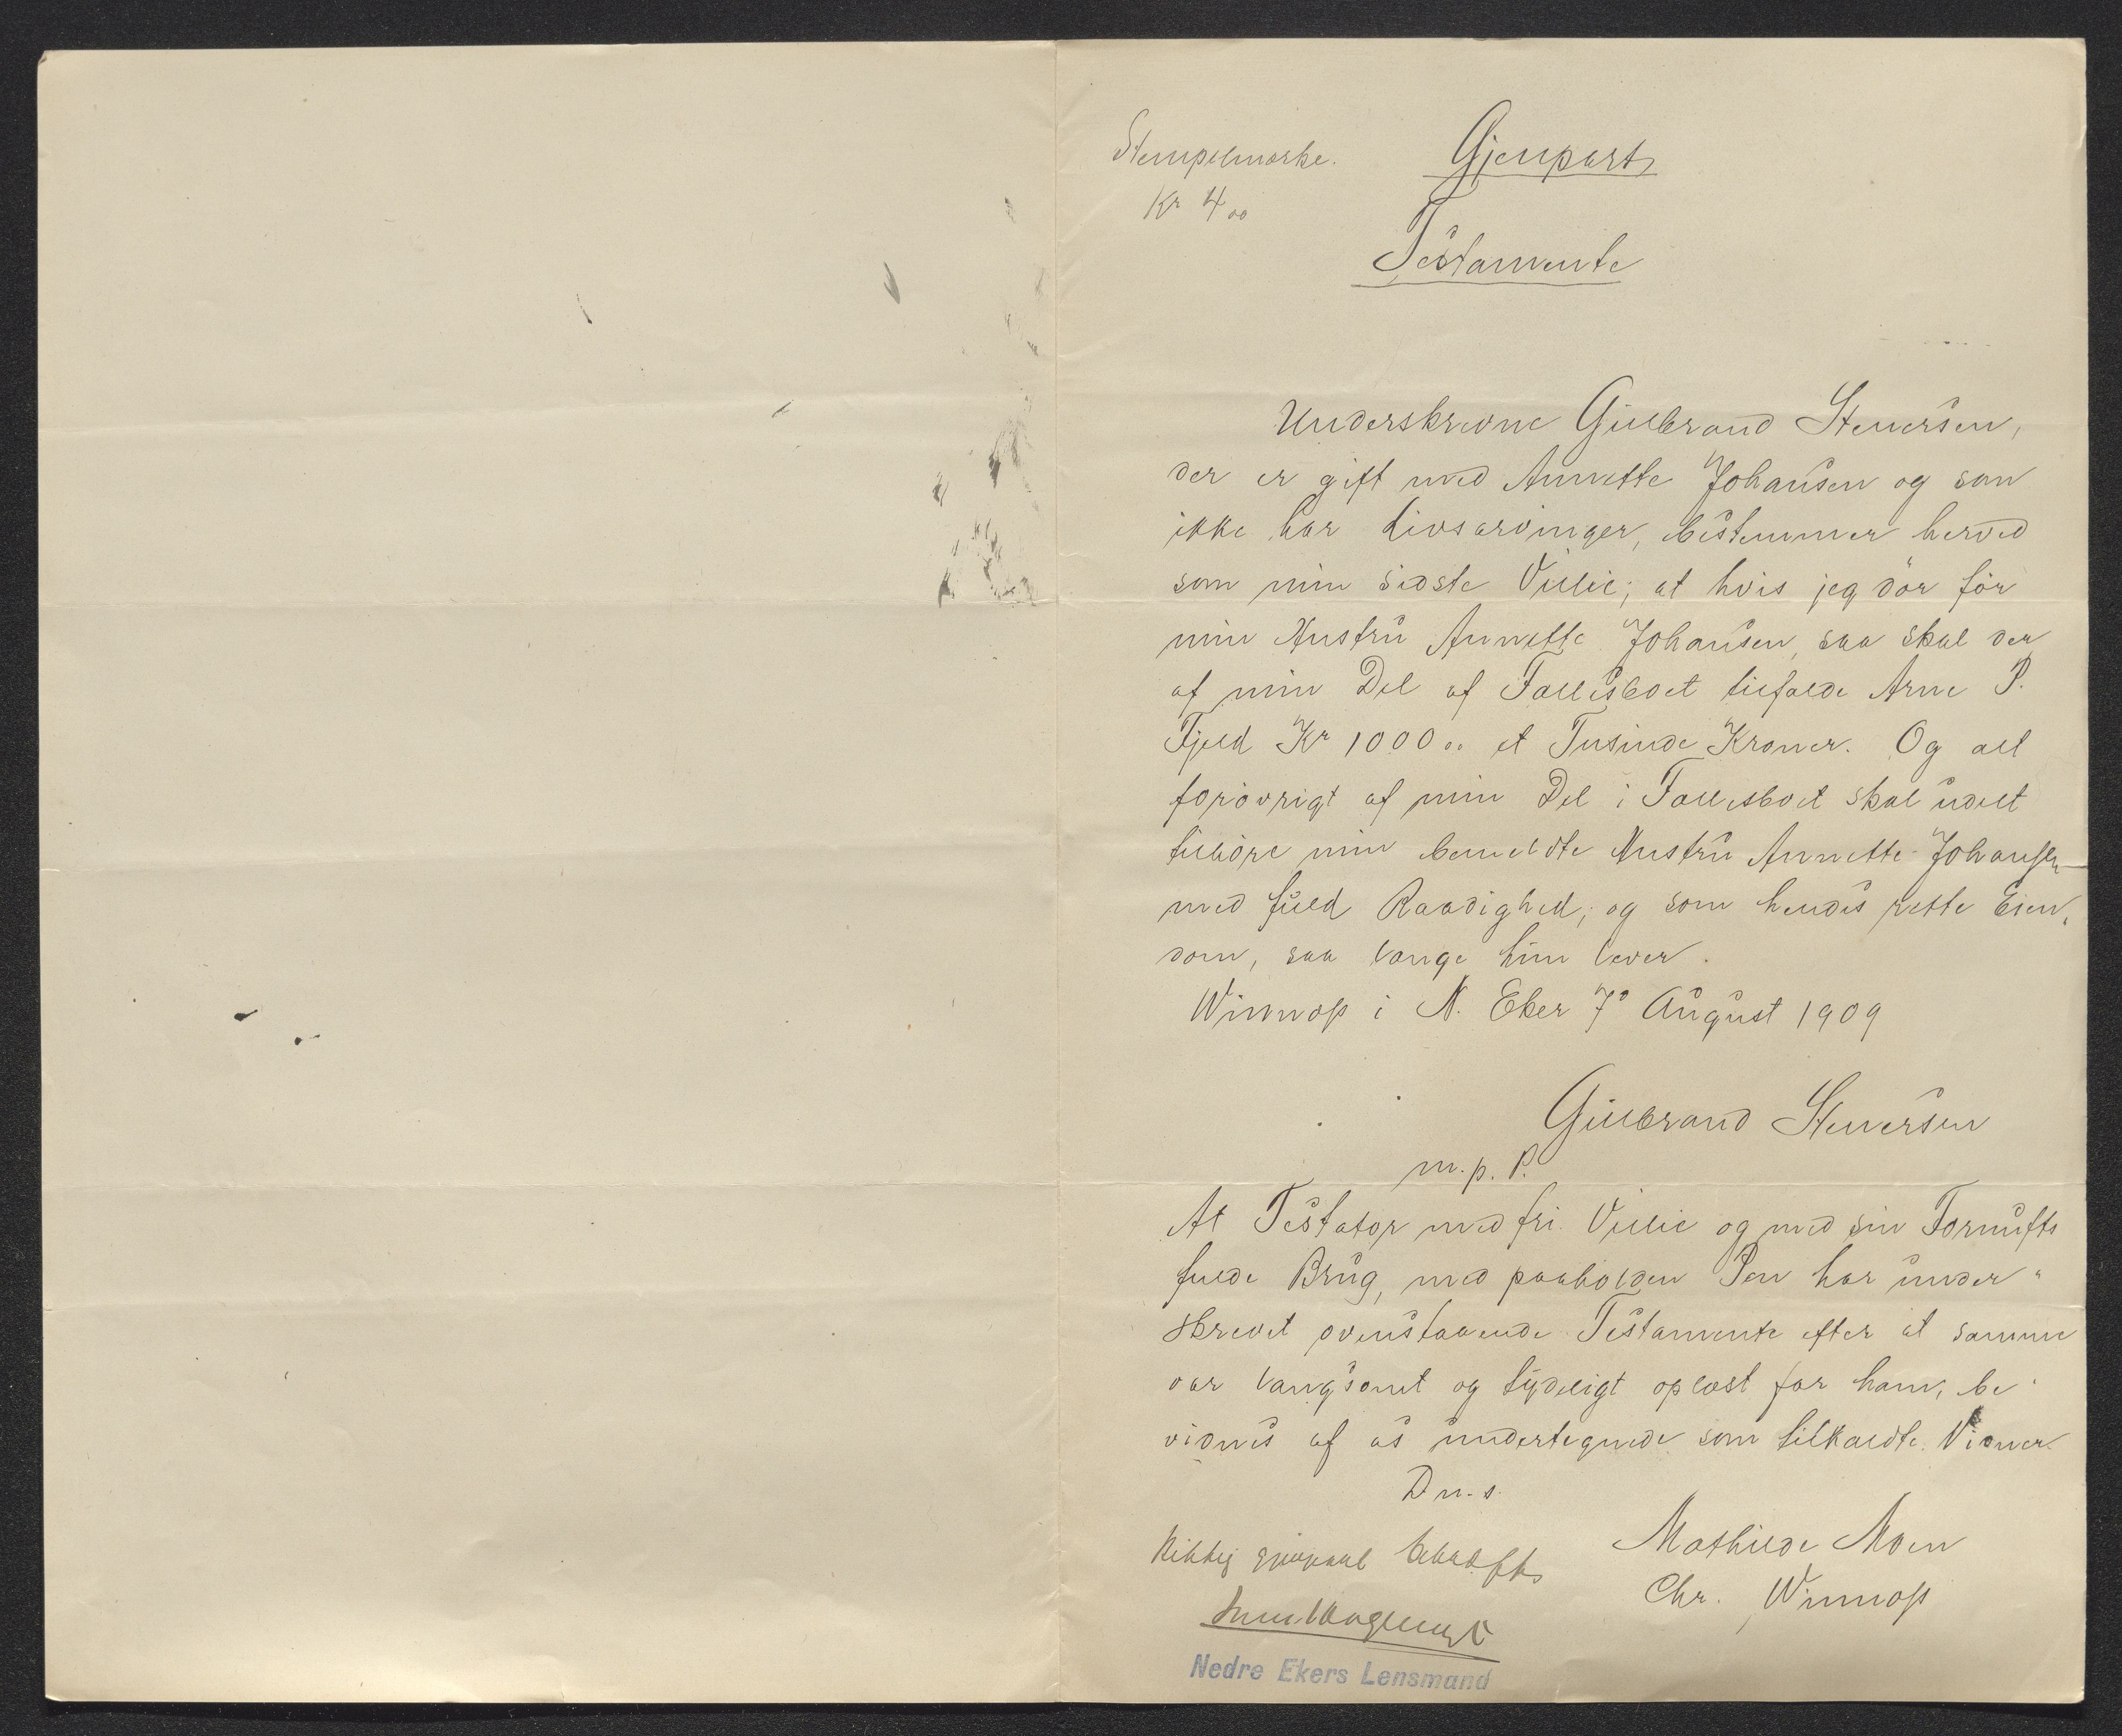 Stempelmærke.
Kr 4 00
Gjenpart
Testamente
Underskrevne Gulbrand Stenersen,
der er gift med Annette Johansen og som
ikke har Livsarvinger, bestemmer herved
som min sidste Villie; at hvis jeg dör för
min Hustru Annette Johansen, saa skal der
af min Del af Fællesboet tilfalde Arne P.
Fjeld Kr 1000 00 et Tusinde Kroner. Og alt
forövrigt af min Del i Fællesboet skal udelt
tilhöre min bemeldte Hustru Annette Johansen
med fuld Raadighed, og som hendes rette Eien„
dom, saa længe hun lever.
Winnops i N. Eker 7 August 1909
Gulbrand Stenersen
m. p. P.
At Testator med fri Villie og med sin Fornufts
fulde Brug, med paaholden Pen har under„
skrevet ovenstaaende Testamente efter at samme
var langsomt og tydeligt oplæst for ham, be„
vidnes af os undertegnede som tilkaldte Vidner.
D. u. s.
Mathilde Moen
Chr. Winnops
Rigtig Gjenpart bekræftes
Nedre Ekers Lensmand